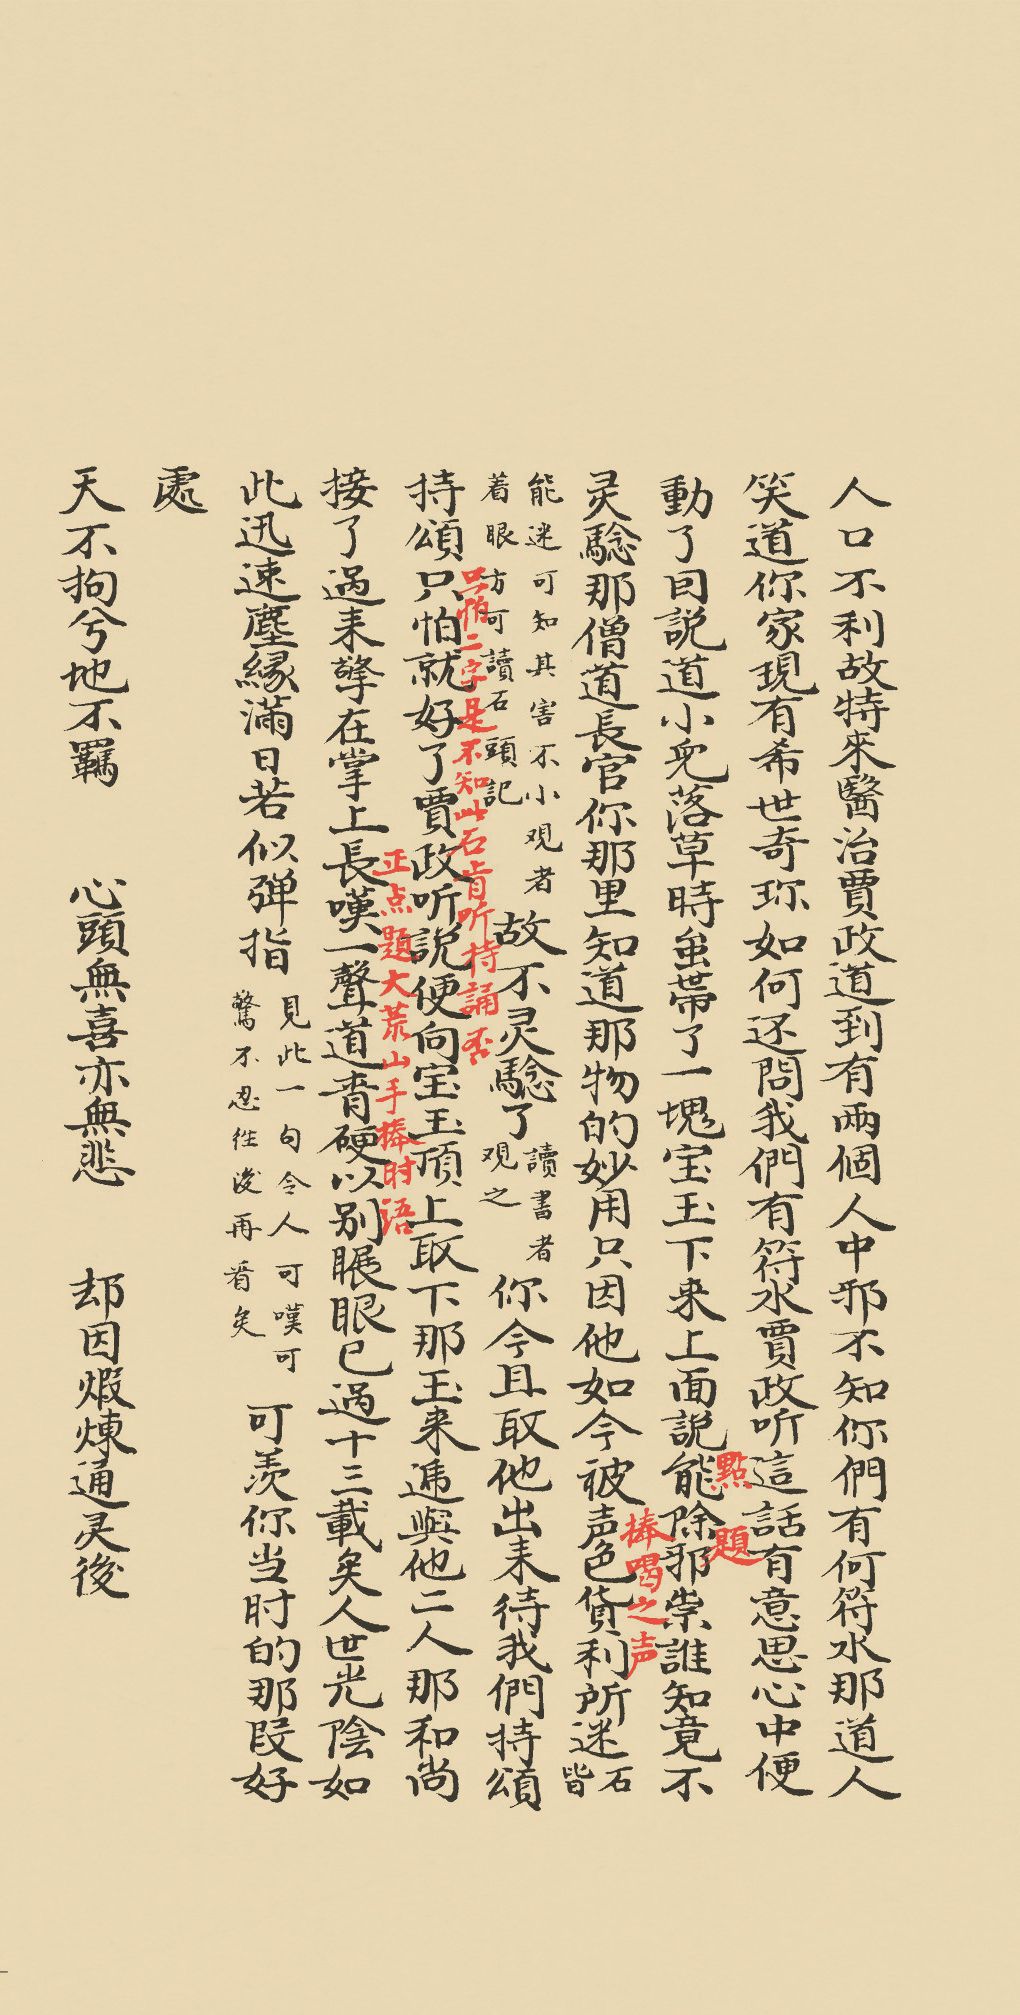 人口不利故特來醫治賈政道到有兩個人中邪不知你們有何符水那道人
笑道你家現有希世奇珎如何还問我們有符水賈政听這話有意思心中便
點題
動了因説道小兒落草時虽帶了一塊宝玉下来上面説能除邪祟誰知竟不
棒喝之声
灵騐那僧道長官你那里知道那物的妙用只因他如今被声色貨利所迷
石皆
能迷可知其害不小观者
着眼方可讀石頭記
故不灵騐了
讀書者
观之
你今且取他出来待我們持頌
只怕二字是不知此石肯听持誦否
持頌只怕就好了賈政听説便向宝玉項上取下那玉来遞與他二人那和尚
正点題大荒山手捧时语
接了過来擎在掌上長嘆一聲道青硬以别睚眼已過十三載矣人世光陰如
此迅速塵緣滿日若似弹指
見此一句令人可嘆可
驚不忍往後再看矣
可羨你当时的那段好
處
天不拘兮地不羈 心頭無喜亦無悲 却因煅煉通灵後